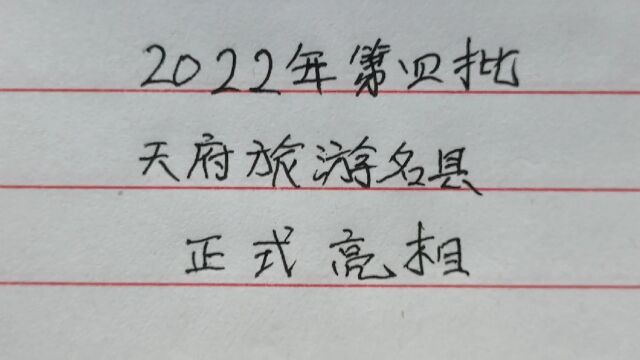 2022年第四批
天府旅游名县
正式亮相